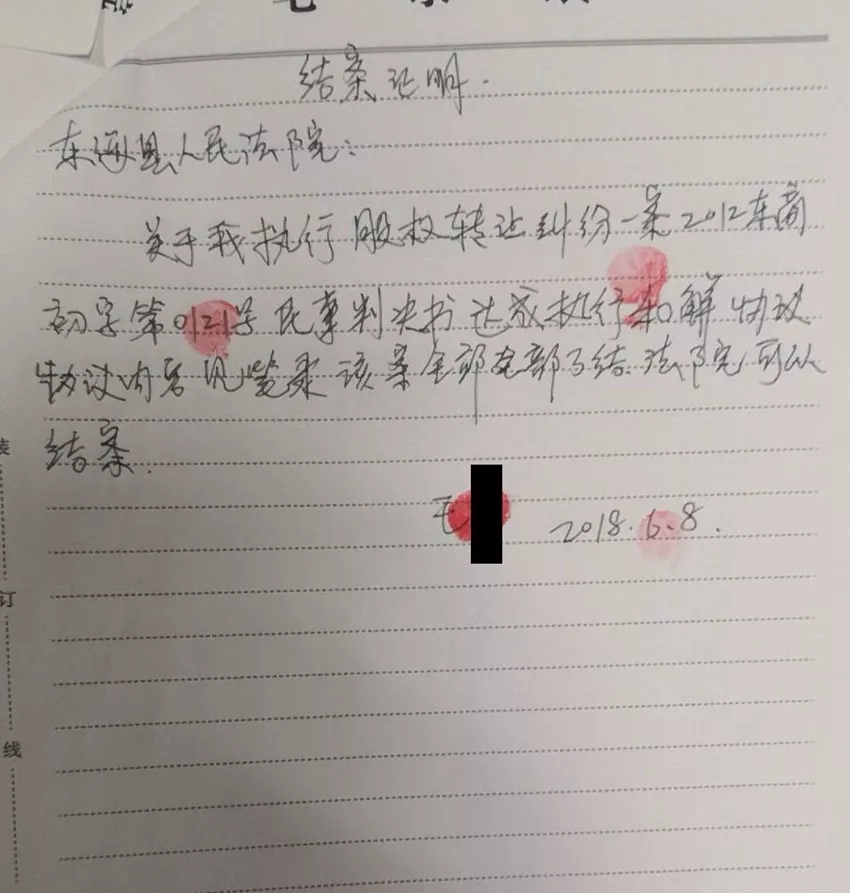 结案证明.
东海县人民法院:
关于我执行股权转让纠纷一案2012东商
初字第0121号民事判决书达成执行和解协议
协议内容见笔录该案全部全部了结.法院可以
结案.
毛
2018.6.8.
装
订
线